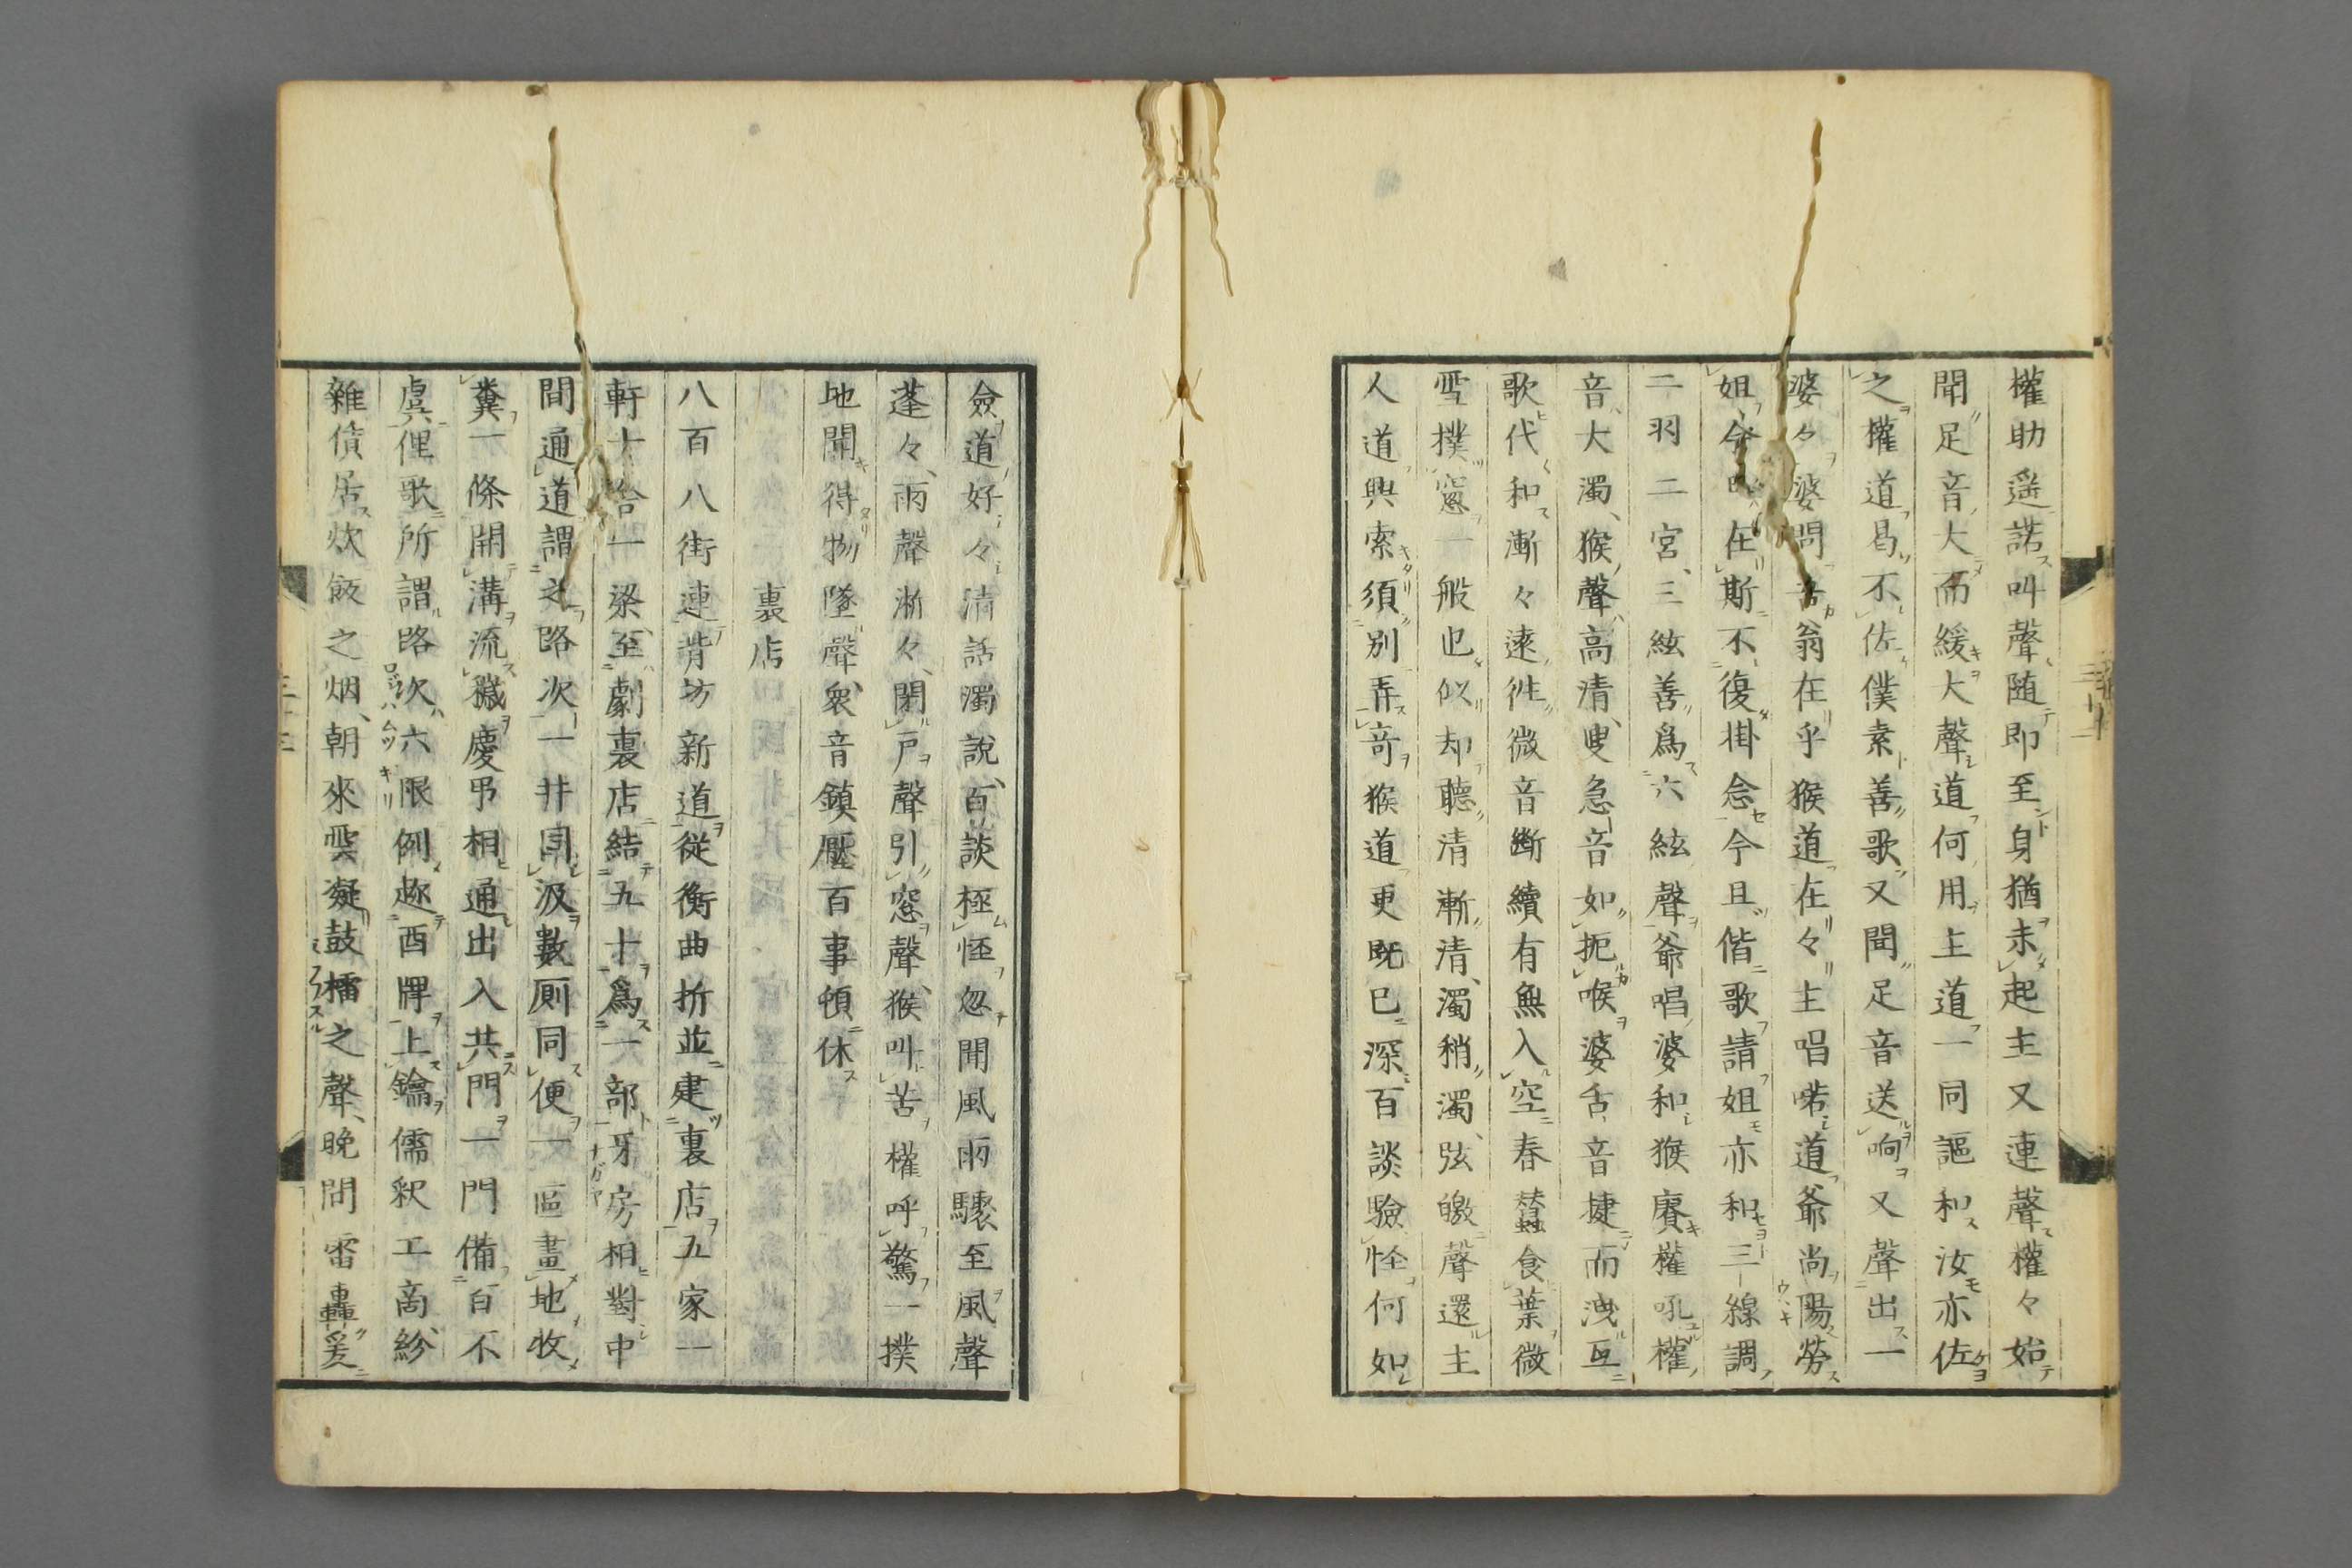 權助遥諾叫聲随即至身猶未起主又連聲權々始
聞足音大而緩大聲道何用主道一同謳和汝亦佐
之權道曷不佐僕素善歌又間足音送响又聲出一
婆々婆問翁在乎猴道在々主唱喏道爺尚陽勞
姐今在斯不復掛念今且偕歌請姐亦和三線調
二羽二宮三絃善爲六絃聲爺唱婆和猴賡權吼權
音大濁猴聲高清嫂急音如扼喉婆舌音捷而洩互
歌代和漸々遠徃微音斷續有無入空春蠶食葉微
雪撲窓一般也似却聽清漸清濁稍濁弦皦聲還主
人道興索須別弄奇猴道更既已深百談驗怪何如
僉道好々清話濁說百談極怪忽聞風雨驟至風聲
蓬々雨聲淅々閉戸聲引窓聲猴叫苦權呼驚一撲
地聞得物墜聲衆音鎮壓百事頓休
裏店
八百八街連背坊新道從衡曲折並建裏店五家一
軒十合一梁至劇裏店結五十爲一部牙房相對中
間通道謂之路次一井同汲數厠同便一區畫地牧
糞一條開溝流穢慶弔相通出入共門一門備百不
虞俚歌所謂路次六限例趂酉牌上鑰儒釈工商紛
雜債居炊飯之烟朝來雲凝鼓檑之聲晚間雷轟爰